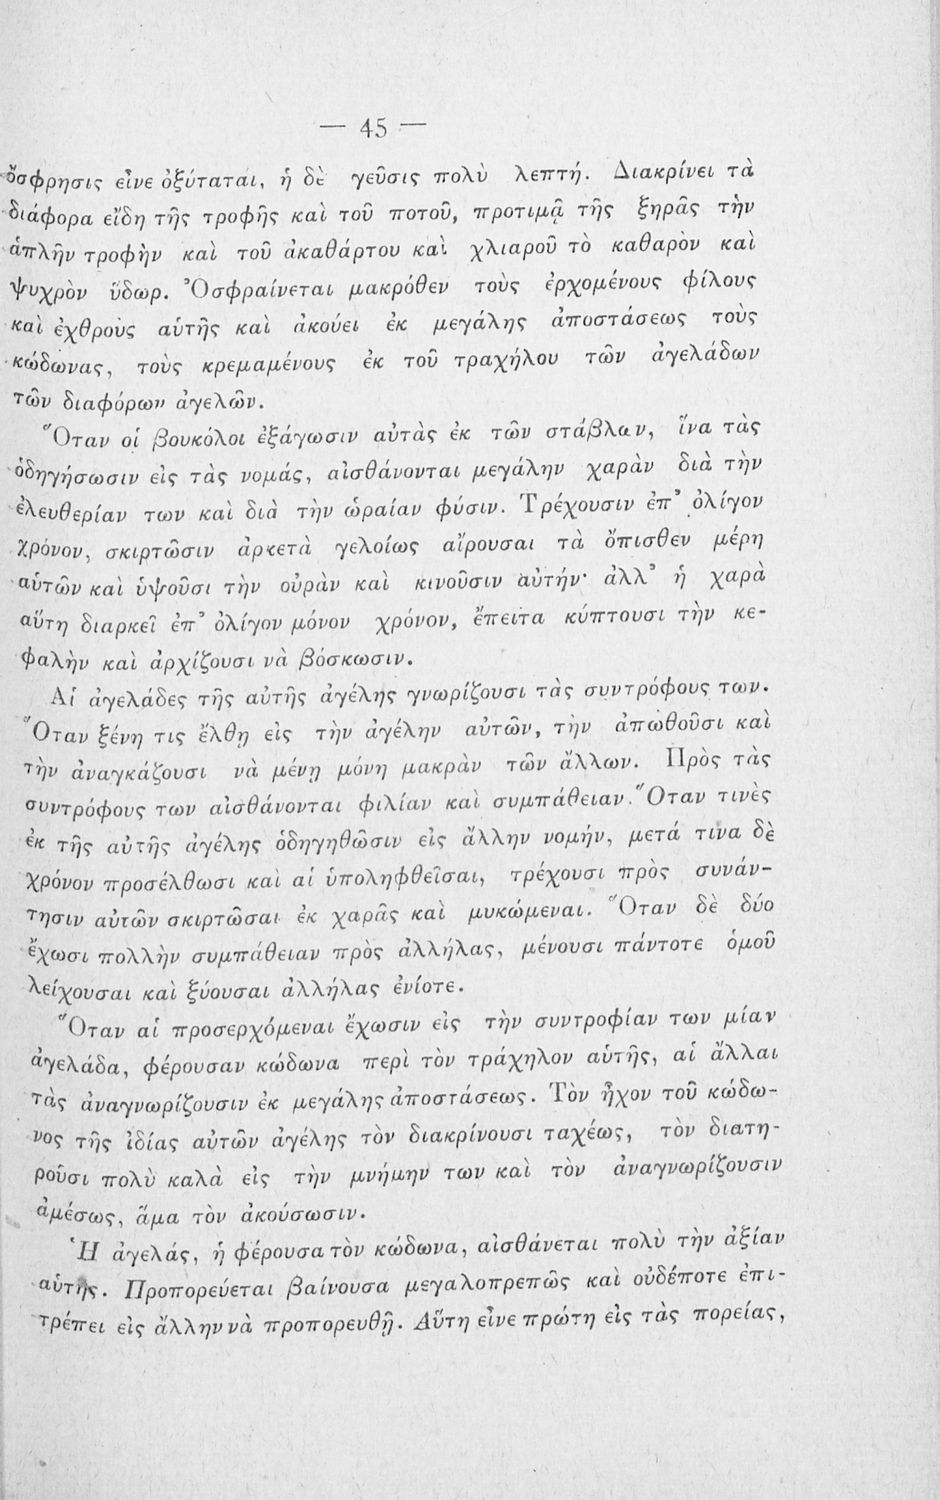 — 45 —
ὄσφρησις εἶνε ὀξύταται, ἡ δὲ γεῦσις πολὺ λεπτή. Διακρίνει τὰ
διάφορα εἴδη τῆς τροφῆς καὶ τοῦ ποτοῦ, προτιμᾷ τῆς ξηρᾶς τὴν
ἁπλῆν τροφὴν καὶ τοῦ ἀκαθάρτου καὶ χλιαροῦ τὸ καθαρὸν καὶ
ψυχρὸν ὕδωρ. Ὀσφραίνεται μακρόθεν τοὺς ἐρχομένους φίλους
καὶ ἐχθροὺς αὑτῆς καὶ ἀκούει ἐκ μεγάλης ἀποστάσεως τοὺς
κώδωνας, τοὺς κρεμαμένους ἐκ τοῦ τραχήλου τῶν ἀγελάδων
τῶν διαφόρων ἀγελῶν.
Ὅταν οἱ βουκόλοι ἐξάγωσιν αὐτὰς ἐκ τῶν στάβλων, ἵνα τὰς
ὁδηγήσωσιν εἰς τὰς νομάς, αἰσθάνονται μεγάλην χαρὰν διὰ τὴν
ἐλευθερίαν των καὶ διὰ τὴν ὡραίαν φύσιν. Τρέχουσιν ἐπ' ὀλίγον
χρόνον, σκιρτῶσιν ἀρκετὰ γελοίως αἴρουσαι τὰ ὄπισθεν μέρη
αὑτῶν καὶ ὑψοῦσι τὴν οὐρὰν καὶ κινοῦσιν αὐτήν· ἀλλ' ἡ χαρὰ
αὕτη διαρκεῖ ἐπ' ὀλίγον μόνον χρόνον, ἔπειτα κύπτουσι τὴν κε-
φαλὴν καὶ ἀρχίζουσι νὰ βόσκωσιν.
Αἱ ἀγελάδες τῆς αὐτῆς ἀγέλης γνωρίζουσι τὰς συντρόφους των.
Ὅταν ξένη τις ἔλθῃ εἰς τὴν ἀγέλην αὐτῶν, τὴν ἀπωθοῦσι καὶ
τὴν ἀναγκάζουσι νὰ μένῃ μόνη μακρὰν τῶν ἄλλων. Πρὸς τὰς
συντρόφους των αἰσθάνονται φιλίαν καὶ συμπάθειαν. Ὅταν τινὲς
ἐκ τῆς αὐτῆς ἀγέλης ὁδηγηθῶσιν εἰς ἄλλην νομήν, μετά τινα δὲ
χρόνον προσέλθωσι καὶ αἱ ὑποληφθεῖσαι, τρέχουσι πρὸς συνάν-
τησιν αὐτῶν σκιρτῶσαι ἐκ χαρᾶς καὶ μυκώμεναι. Ὅταν δὲ δύο
ἔχωσι πολλὴν συμπάθειαν πρὸς ἀλλήλας, μένουσι πάντοτε ὁμοῦ
λείχουσαι καὶ ξύουσαι ἀλλήλας ἐνίοτε.
Ὅταν αἱ προσερχόμεναι ἔχωσιν εἰς τὴν συντροφίαν των μίαν
ἀγελάδα, φέρουσαν κώδωνα περὶ τὸν τράχηλον αὑτῆς, αἱ ἄλλαι
τὰς ἀναγνωρίζουσιν ἐκ μεγάλης ἀποστάσεως. Τὸν ἦχον τοῦ κώδω-
νος τῆς ἰδίας αὑτῶν ἀγέλης τὸν διακρίνουσι ταχέως, τὸν διατη-
ροῦσι πολὺ καλὰ εἰς τὴν μνήμην των καὶ τὸν ἀναγνωρίζουσιν
ἀμέσως, ἅμα τὸν ἀκούσωσιν.
Ἡ ἀγελάς, ἡ φέρουσα τὸν κώδωνα, αἰσθάνεται πολὺ τὴν ἀξίαν
αὑτῆς. Προπορεύεται βαίνουσα μεγαλοπρεπῶς καὶ οὐδέποτε ἐπι-
τρέπει εἰς ἄλλην νὰ προπορευθῇ. Αὕτη εἶνε πρώτη εἰς τὰς πορείας,